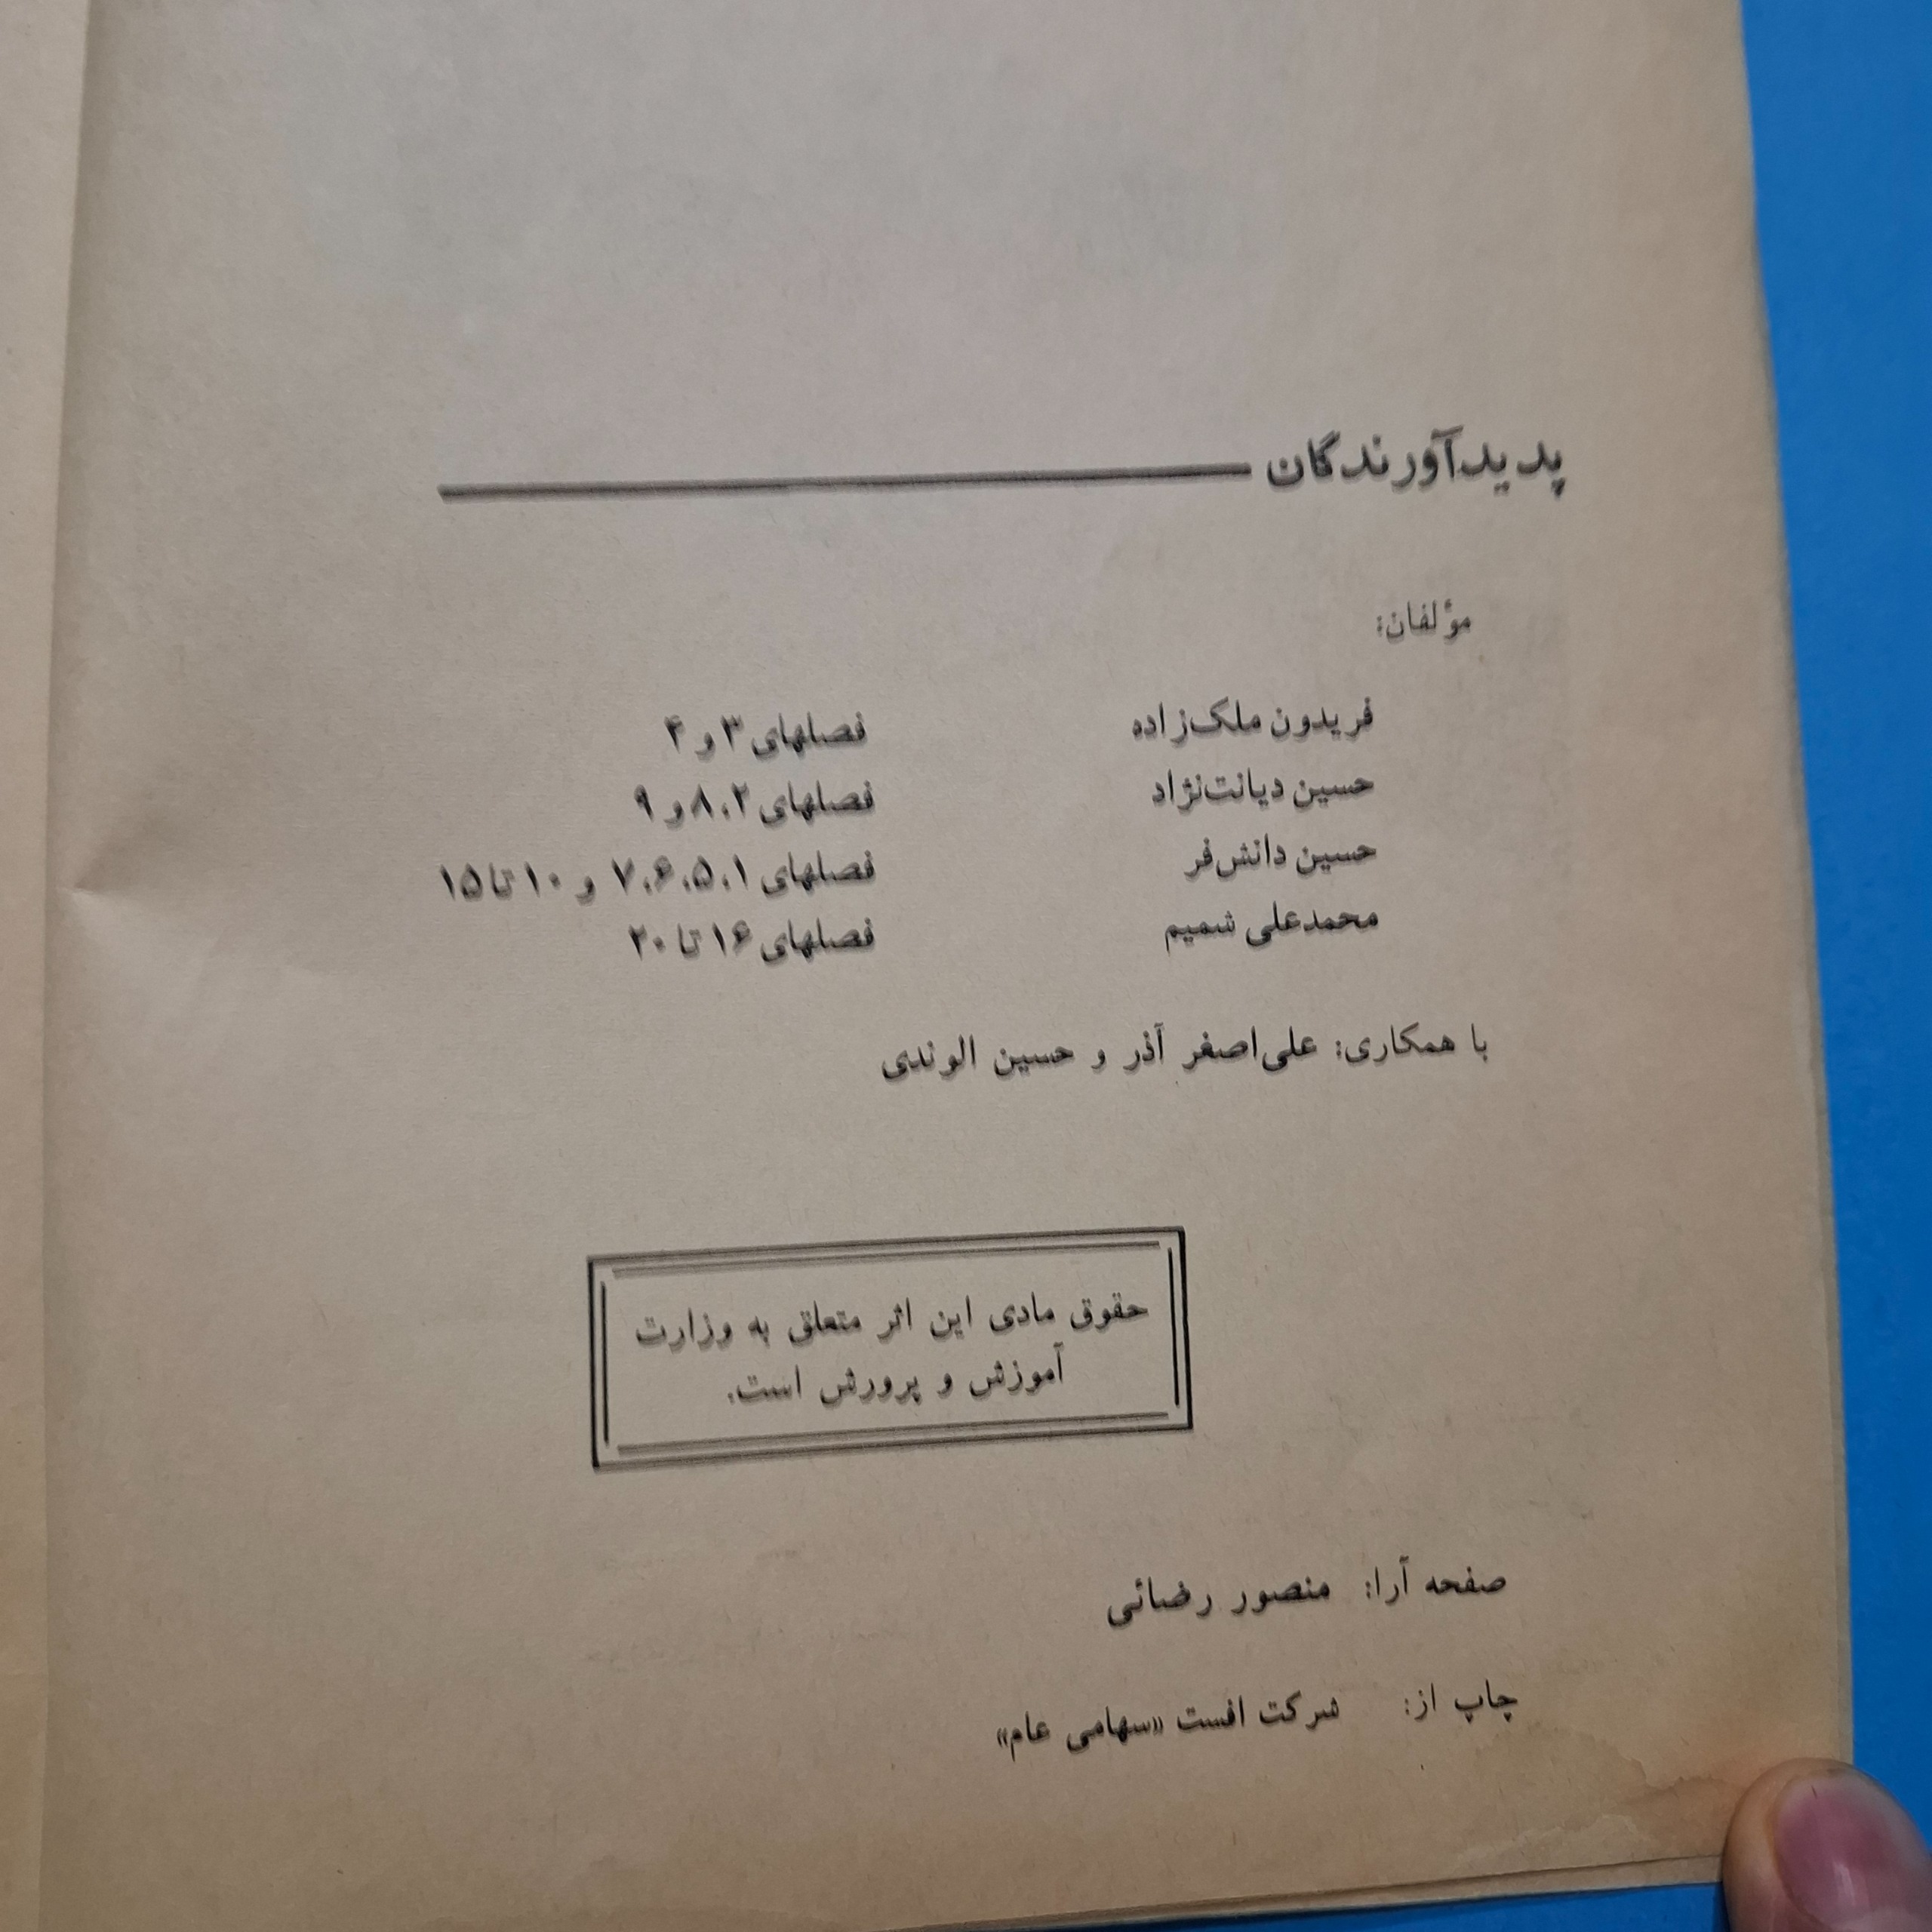 پدیدآورندگان
مؤلفان:
فریدون ملک‌زاده فصلهای ۳ و ۴
حسین دیانت‌نژاد فصلهای ۲، ۸ و ۹
حسین دانش‌فر فصلهای ۱، ۵، ۶، ۷ و ۱۰ تا ۱۵
محمدعلی شمیم فصلهای ۱۶ تا ۲۰
با همکاری: علی‌اصغر آذر و حسین الوندی
حقوق مادی این اثر متعلق به وزارت
آموزش و پرورش است.
صفحه آرا: منصور رضائی
چاپ از: شرکت افست «سهامی عام»